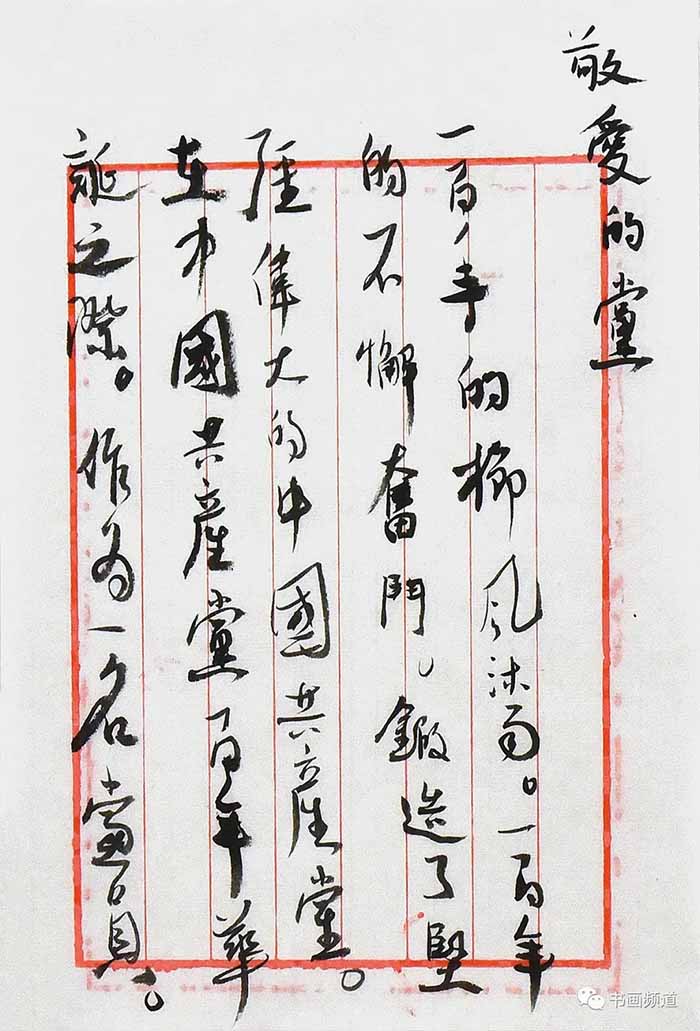 敬愛的黨
一百年的櫛风沐雨。一百年
的不懈奮鬥。鍛造了堅
强偉大的中國共产產黨。
在中國共產黨一百年華
誕之際。作為一名黨員。
书画频道